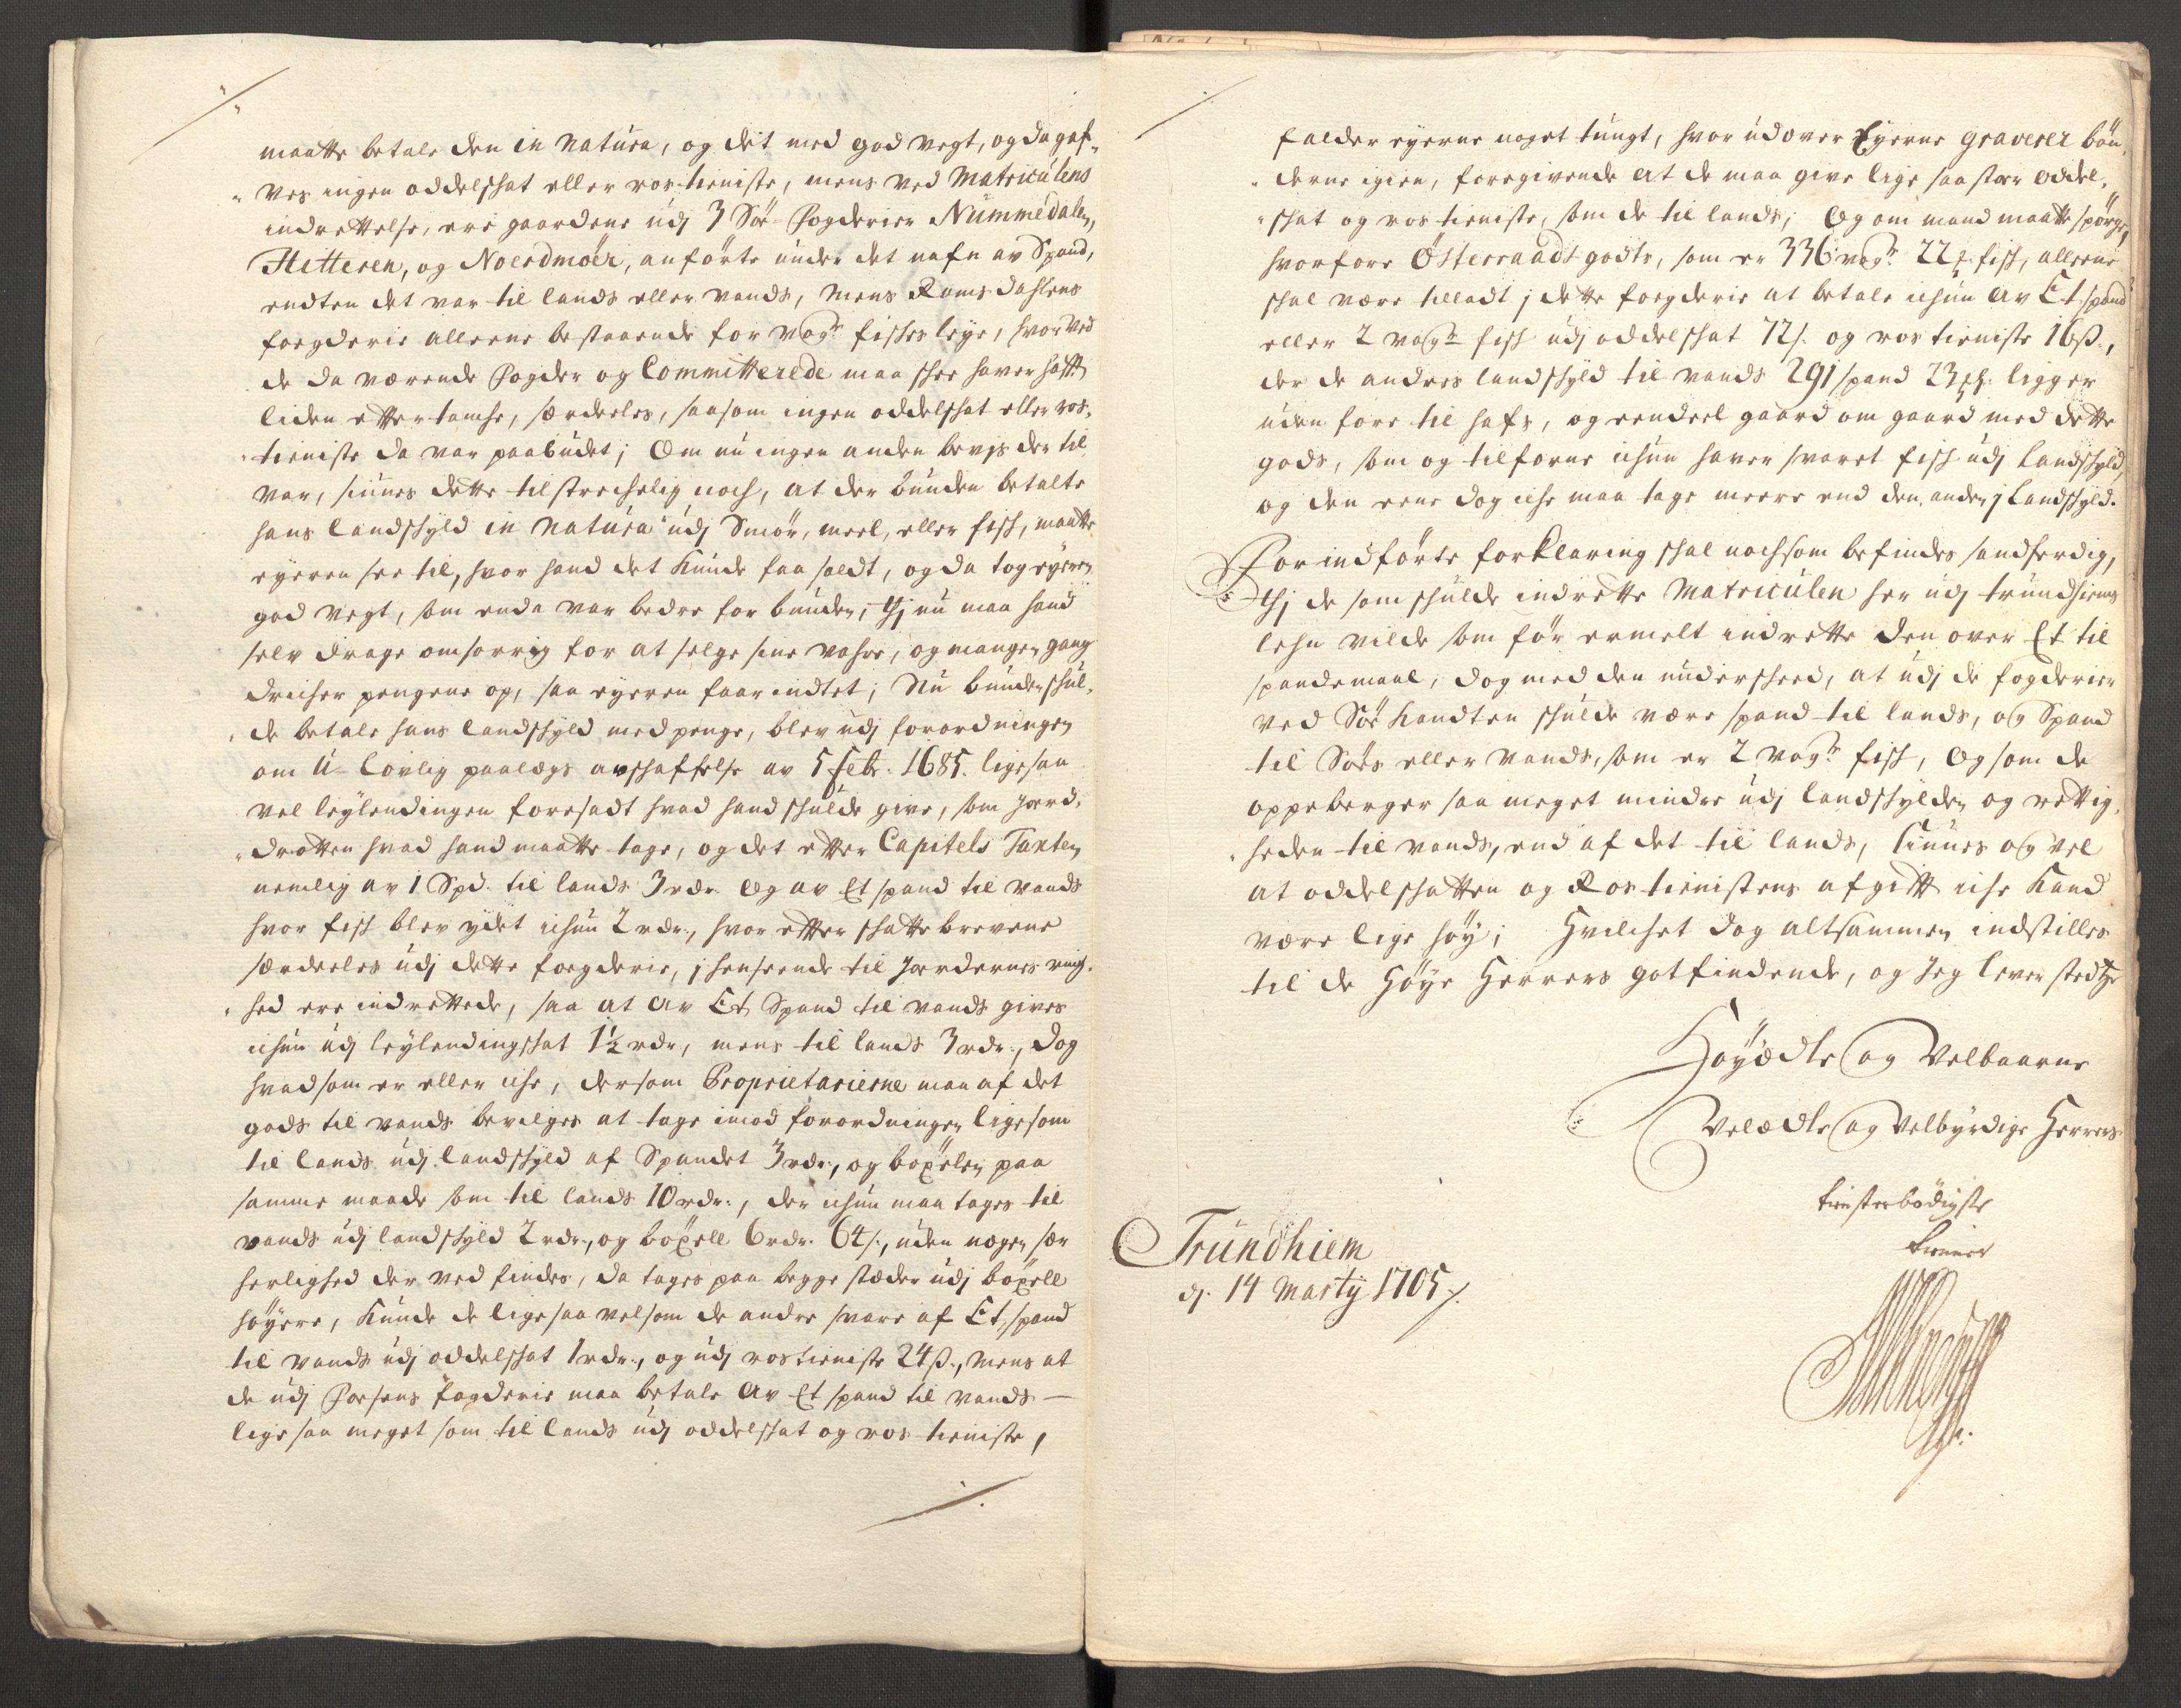 maatte betale den in natura, og det med god vegt, og da gaf-
ves ingen oddelschat eller ros-tieniste, mens ved Matriculens
indrettelse, ere gaardene udj 3 Söe-Fogderier Nummedalen,
Hitteren, og Noerdmöer, anförte under det nafn av Spand,
endten det var til lands eller vands, mens Romsdahlens
foegderie alleene bestaaende for vog:r fiskes leye, hvorved
de da værende Fogder og Committerede maa skee haver hafft
liden efftertancke, særdeeles, saasom ingen oddelschat eller ros-
tieniste da var paabudet; Om nu ingen anden bevjs der til
var, siunes dette tilstreckelig noch, at der bunden betalte
hans landschyld in natura udj Smör, meel, eller fisk, maatte
eyeren see til, hvor hand det kunde faa saldt, og da tog eyeren
god vegt, som enda var bedre for bunden; thj nu maa hand
selv drage omsorrig for at selge sine vahre, og mangen gang
dricker pengene op, saa eyeren faar indtet; Nu bunden skul-
de betale hans landschyld med penge, blev udj forordningen
om U-lovlig paalægs avschaffelse av 5 febr: 1685. ligesaa
vel leylendingen foresadt hvad hand skulde give, som Jord-
drotten hvad hand maatte tage, og det effter Capitels Taxten
nemlig av 1 Spd: til lands 3 rdr. og av Et spand til vands
hvor fisk blev ydet ickun 2 rdr., hvor effter skattebrevene
særdeeles udj dette foegderie, j henseende til Jordernes ring-
hed ere indrettede, saa at av Et Spand til vands gives
ickun udj leylendingskat 1½ rdr, mens til lands 3 rdr., dog
hvad som er eller icke, dersom Proprietarierne maa af det
gods til vands bevilges at tage imod forordningen ligesom
til lands udj landschyld af Spandet 3 rdr., og böxelen paa
samme maade som til lands 10 rdr., der ickun maa tages til
vands udj landschyld 2 rdr., og böxell 6 rdr. 64 s., uden nogen sær
herlighed der ved findes, da tages paa begge stæder udj böxell
höyere, kunde de ligesaavel som de andre svare af Et spand
til vands udj oddelschat 1 rdr., og udj rostieniste 24 s., mens at
de udj Fosens fogderie maa betale av Et spand til vands —
lige saa meget som til lands udj oddelschat og ros-tieniste,
falder eyerne noget tungt, hvor udover Eyerne graverer bön-
derne igien, foregivende at de maa give lige saa stor oddel-
schat og ros tieniste, som de til lands; Og om mand maatte spörge,
hvorfore Österraadt godts, som er 336 vog:r 22 fisk, alleene
skal være tilladt j dette foegderie at betale ickun av Et spand
eller 2 vog:r fisk udj oddelschat 72 s. og ros tieniste 16 s.,
der de andres landschyld til vands 291 spand 23 ligger
uden fore til hafs, og eendeel gaard om gaard med dette
gods, som og tilforne ickun haver svaret fisk udj Landschyld,
og den eene dog icke maa tage meere end den anden j Landschyld.
Forindförte forklaring skal nochsom befindes sandferdig,
thj de som skulde indrette Matriculen her udj trundhiems
lehn vilde som för ermelt indrette den over Et til
spandemaal, dog med den underskeed, at udj de fogderier
ved Söe Kandten skulde være spand til lands, og Spand
til Söes eller vands, som er 2 vog:r fisk, Og som de
oppeberger saa meget mindre udj landschylden og rettig-
heden til vands, end af det til lands, siunes og vel
at oddelschatten og Rostienistens afgifft icke kand
være lige höy; Hvilchet dog altsammen indstilles
til de Höye Herrers gotfindende, og Jeg lever stedtze
Höyædle og Velbaarne
Velædle og Velbyrdige Herrers
tienstberödigste
tienner
Trundhiem
dj. 14 Martij 1705.